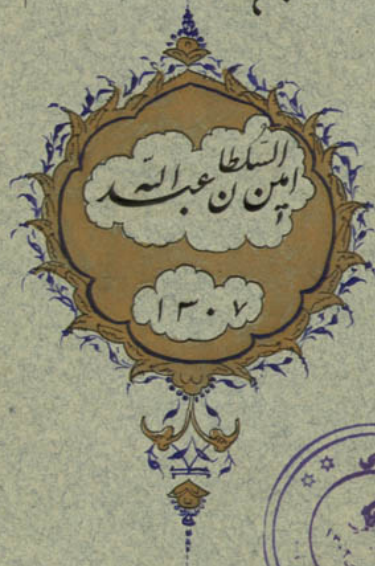 امین السلطان عبد الله
۱۳۰۷